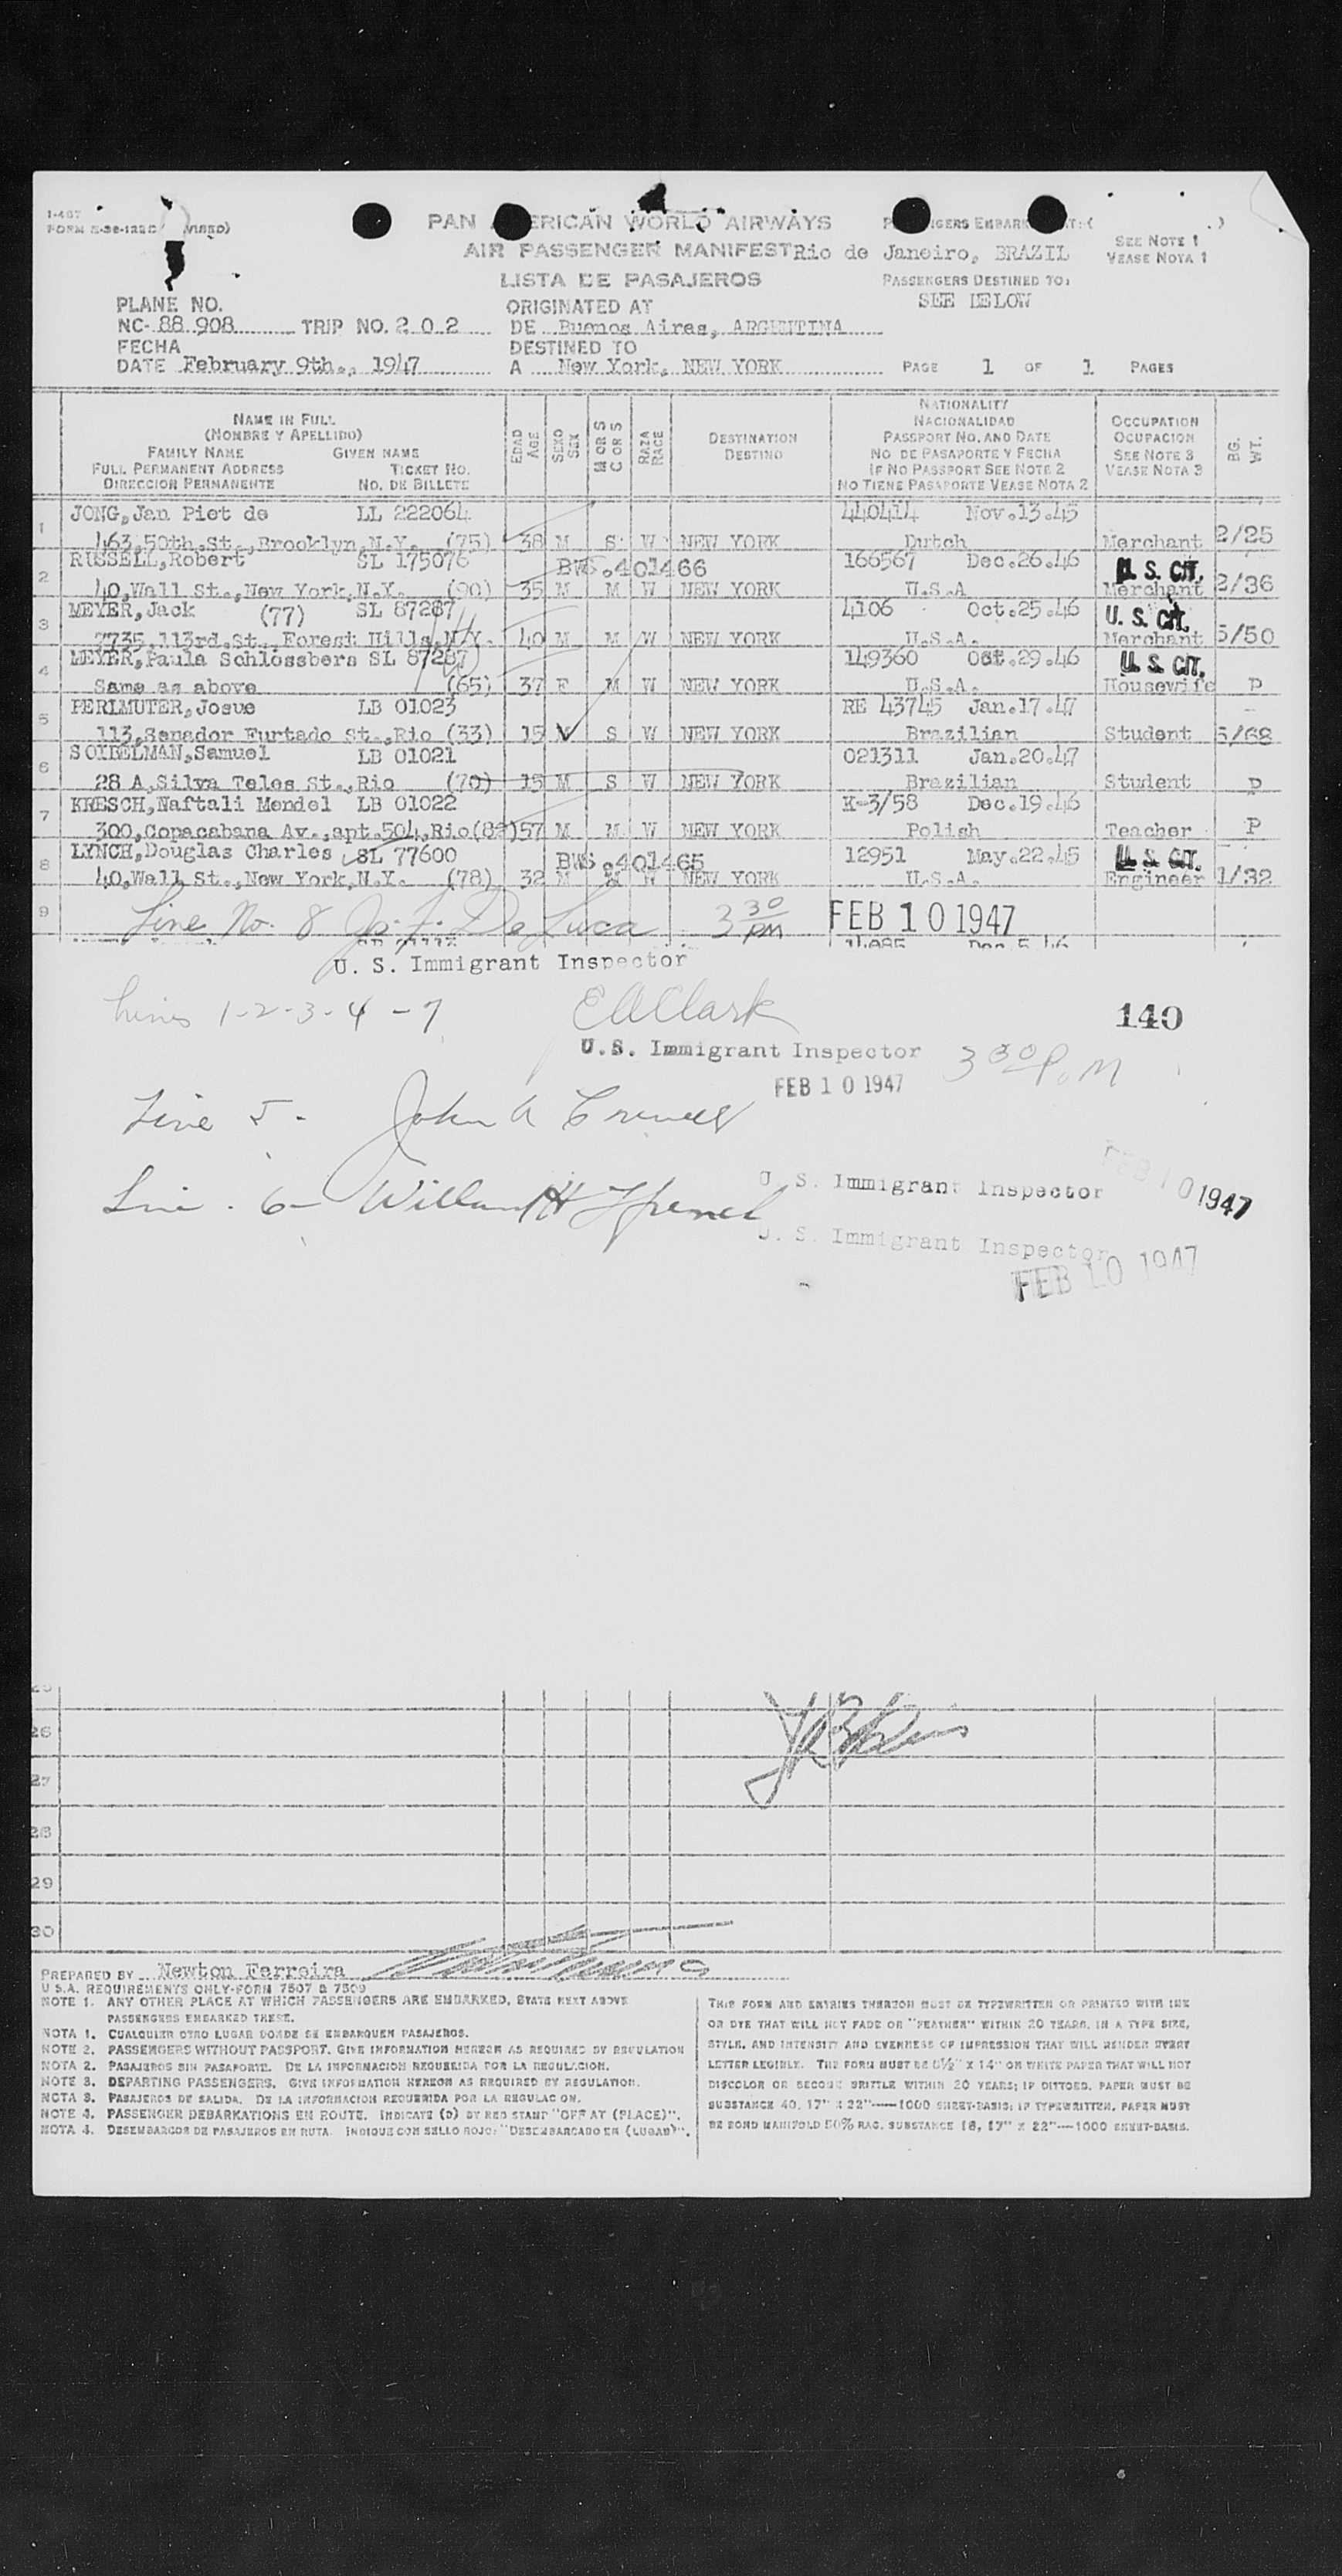 I-467
PAN AMERICAN WORLD AIRWAYS
AIR PASSENGER MANIFEST Rio de Janeiro, BRAZIL
SEE NOTE 1
VEASE NOTA 1
LISTA DE PASAJEROS
PASSENGERS DESTINED TO:
SEE BELOW
PLANE NO.
NC- 88 908 TRIP NO. 2 0 2
ORIGINATED AT
DE Buenos Aires, ARGENTINA
FECHA
DATE February 9th., 1947
DESTINED TO
A New York, NEW YORK
PAGE 1 OF 1 PAGES
NAME IN FULL
(NOMBRE Y APELLIDO)
FAMILY NAME GIVEN NAME
FULL PERMANENT ADDRESS TICKET NO.
DIRECCION PERMANENTE NO. DE BILLETE
EDAD AGE
SEXO SEX
M OR S C OR S
RAZA RACE
DESTINATION
DESTINO
NATIONALITY
NACIONALIDAD
PASSPORT NO. AND DATE
NO. DE PASAPORTE Y FECHA
IF NO PASSPORT SEE NOTE 2
NO TIENE PASAPORTE VEASE NOTA 2
OCCUPATION
OCUPACION
SEE NOTE 3
VEASE NOTA 3
BG. WT.
1 JONG, Jan Piet de LL 222064 440414 Nov.13.45
463,50th.St.,Brooklyn,N.Y. (75) 38 M S W NEW YORK Dutch Merchant 2/25
2 RUSSELL,Robert SL 175076 BWS.401466 166567 Dec.26.46 U. S. CIT.
40,Wall St.,New York,N.Y. (90) 35 M M W NEW YORK U.S.A Merchant 2/36
3 MEYER,Jack (77) SL 87287 4106 Oct.25.46 U. S. CIT.
7735,113rd.St.,Forest Hills,N.Y. 40 M M W NEW YORK U.S.A. Merchant 5/50
4 MEYER,Paula Schlossbers SL 87287 149360 Oct.29.46 U. S. CIT.
Same as above (65) 37 F M W NEW YORK U.S.A. Housewife P
5 PERLMUTER,Josue LB 01023 RE 43745 Jan.17.47
113,Senador Furtado St.,Rio (33) 15 S W NEW YORK Brazilian Student 5/68
6 SOIBELMAN,Samuel LB 01021 021311 Jan.20.47
28 A,Silva Teles St.,Rio (70) 15 M S W NEW YORK Brazilian Student P
7 KRESCH,Naftali Mendel LB 01022 K-3/58 Dec.19.46
300,Copacabana Av.,apt.504,Rio 57 M M W NEW YORK Polish Teacher P
8 LYNCH,Douglas Charles SL 77600 BWS.401465 12951 May.22.45 U. S. CIT.
40,Wall St.,New York,N.Y. (78) 32 M M W NEW YORK U.S.A. Engineer 1/32
9 Line No. 8 Jo. F. De Luca 3 30 PM FEB 10 1947
U. S. Immigrant Inspector
Lines 1-2-3-4-7 E A Clark 140
U.S. Immigrant Inspector 3 30 P.M
FEB 10 1947
Line 5- John A
U. S. Immigrant Inspector FEB 10 1947
Line. 6-
U. S. Immigrant Inspector
FEB 10 1947
26
27
28
29
30
PREPARED BY Newton Ferreira
U.S.A. REQUIREMENTS ONLY-FORM 7507 & 7509
NOTE 1. ANY OTHER PLACE AT WHICH PASSENGERS ARE EMBARKED, STATE NEXT ABOVE
PASSENGERS EMBARKED THERE.
NOTA 1. CUALQUIER OTRO LUGAR DONDE SE EMBARQUEN PASAJEROS.
NOTE 2. PASSENGERS WITHOUT PASSPORT. GIVE INFORMATION HEREON AS REQUIRED BY REGULATION
NOTA 2. PASAJEROS SIN PASAPORTE. DE LA INFORMACION REQUERIDA POR LA REGULACION.
NOTE 3. DEPARTING PASSENGERS. GIVE INFORMATION HEREON AS REQUIRED BY REGULATION.
NOTA 3. PASAJEROS DE SALIDA. DE LA INFORMACION REQUERIDA POR LA REGULACION.
NOTE 4. PASSENGER DEBARKATIONS EN ROUTE. INDICATE (D) BY RED STAMP "OFF AT (PLACE)".
NOTA 4. DESEMBARCOS DE PASAJEROS EN RUTA. INDIQUE CON SELLO ROJO: "DESEMBARCADO EN (LUGAR)".
THIS FORM AND ENTRIES THEREON MUST BE TYPEWRITTEN OR PRINTED WITH INK
OR DYE THAT WILL NOT FADE OR "FEATHER" WITHIN 20 YEARS, IN A TYPE SIZE,
STYLE, AND INTENSITY AND EVENNESS OF IMPRESSION THAT WILL RENDER EVERY
LETTER LEGIBLE. THE FORM MUST BE 8½" X 14" ON WHITE PAPER THAT WILL NOT
DISCOLOR OR BECOME BRITTLE WITHIN 20 YEARS; IF DITTOED, PAPER MUST BE
SUBSTANCE 40, 17" X 22"—1000 SHEET-BASIS; IF TYPEWRITTEN, PAPER MUST
BE BOND MANIFOLD 50% RAG, SUBSTANCE 16, 17" X 22"—1000 SHEET-BASIS.